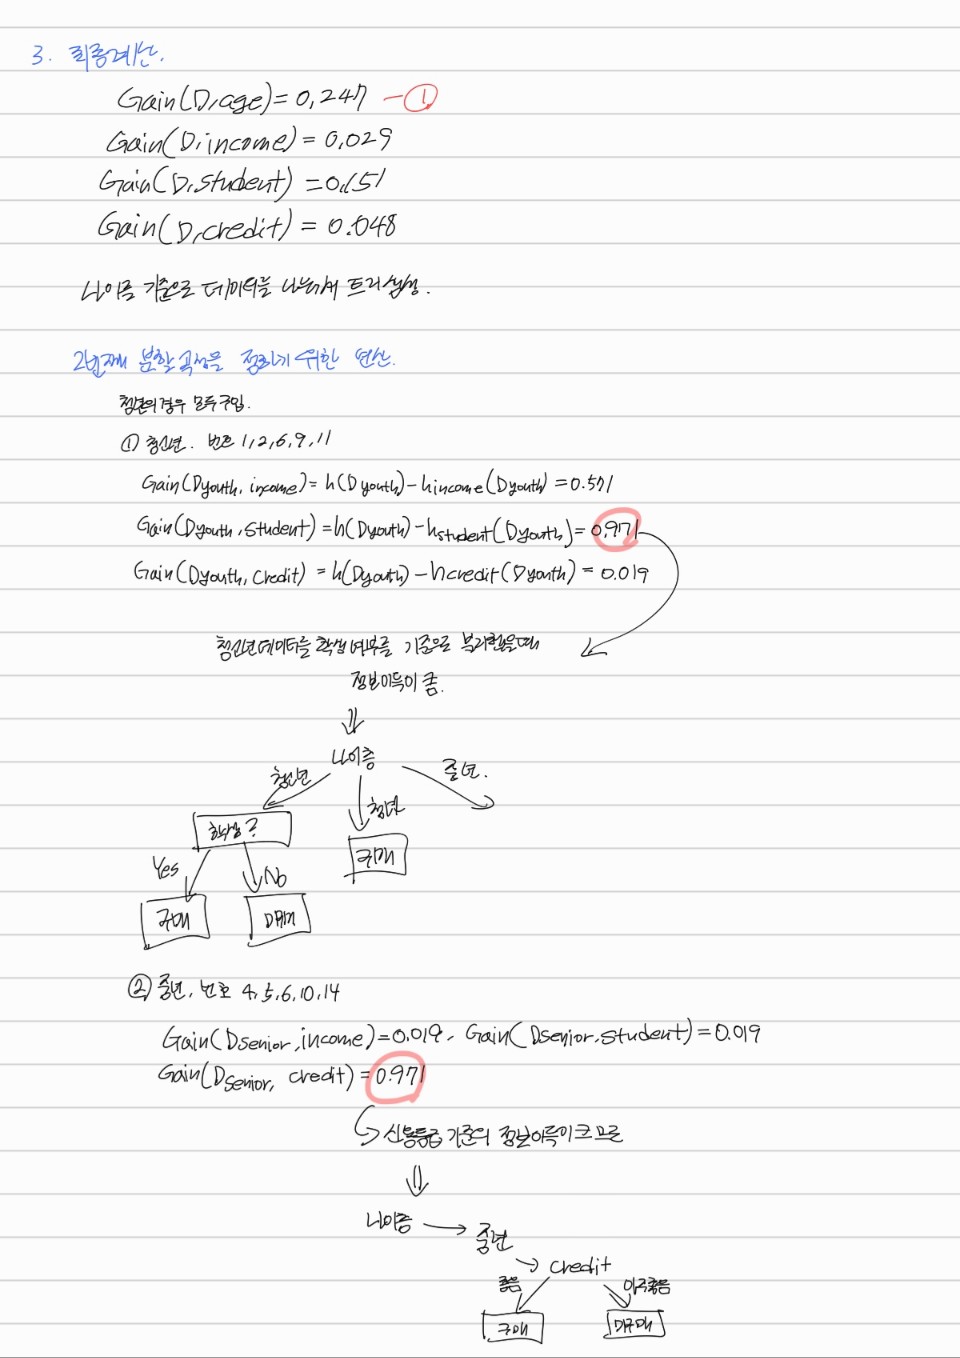 3. 최종계산.
Gain(D,age)=0,247 -①
Gain(D,income)=0.029
Gain(D,student)=0.151
Gain(D,credit)=0.048
나이를 기준으로 데이터를 나눠서 트리생성.
2번째 분할 속성을 정하기 위한 연산.
청년의 경우 모두 구입.
① 청소년. 번호 1,2,6,9,11
Gain(Dyouth, income)=h(Dyouth)-hincome(Dyouth)=0.571
Gain(Dyouth,Student)=h(Dyouth)-hstudent(Dyouth)=0.971
Gain(Dyouth,Credit)=h(Dyouth)-hcredit(Dyouth)=0.019
청소년데이터를 학생여부를 기준으로 분리했을때
정보이득이 큼.
나이층
청소년 청년 중년.
학생? 구매
Yes No
구매 미구매
② 중년, 번호 4,5,6,10,14
Gain(Dsenior,income)=0.019, Gain(Dsenior,student)=0.019
Gain(Dsenior, credit)=0.971
신용등급 기준의 정보이득이 크므로
나이층 중년
credit
좋음 아주좋음
구매 미구매